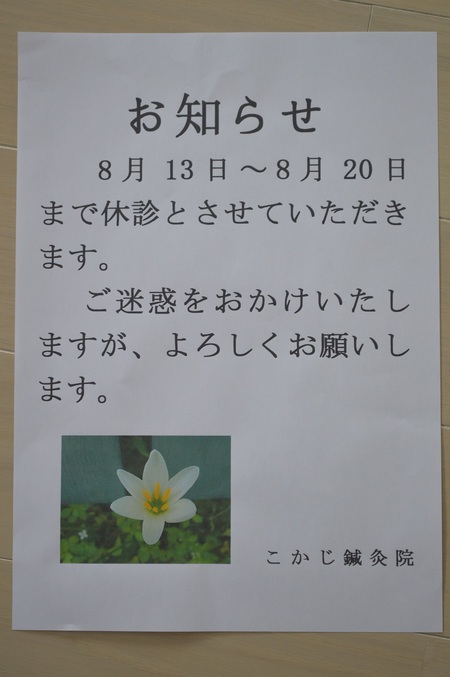 お知らせ
8月 13日～8月 20日
まで休診とさせていただき
ます。
ご迷惑をおかけいたし
ますが、よろしくお願いし
ます。
こかじ鍼灸院